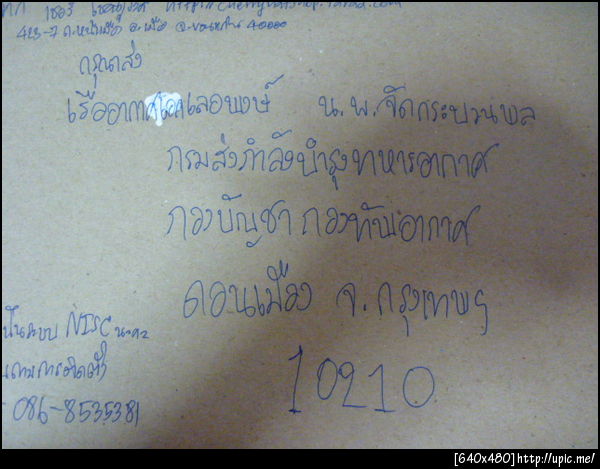 423-7 ถ.หน้าเมือง อ.เมือง จ.ขอนแก่น 40000
กรุณาส่ง
เรืออากาศเอกเลอพงษ์ น.พ.จัดกระบวนพล
กรมส่งกำลังบำรุงทหารอากาศ
กองบัญชา กองทัพอากาศ
ดอนเมือง จ.กรุงเทพฯ
10210
เป็นระบบ NTSC นะคะ
086-8535381
[640x480]http://upic.me/